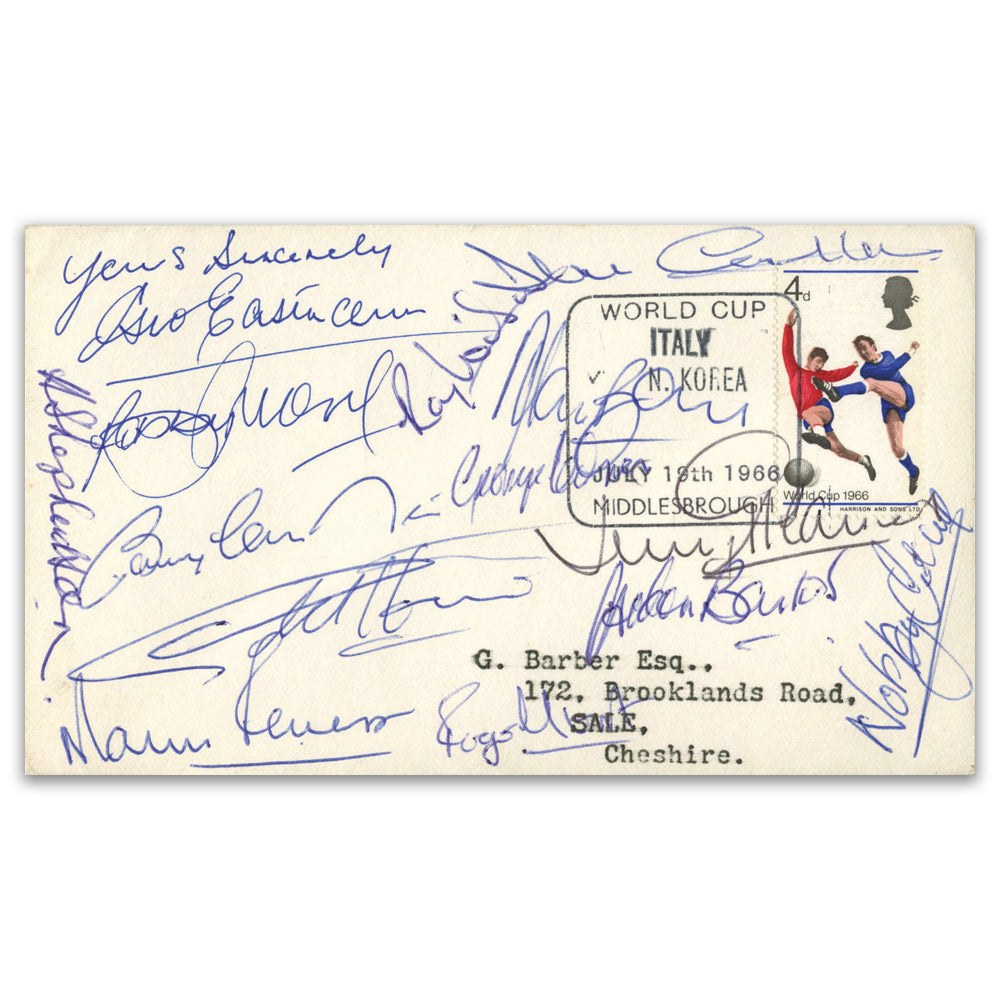 Yours Sincerely
Geo Eastham
Bobby Moore
Ray Wilson
Alan Ball
4d
WORLD CUP
ITALY
v N. KOREA
JULY 19th 1966
MIDDLESBROUGH
World Cup 1966
HARRISON AND SONS LTD
George Cohen
Gordon Banks
Nobby Stiles
Martin Peters
Roger Hunt
G. Barber Esq.,
172, Brooklands Road,
SALE,
Cheshire.